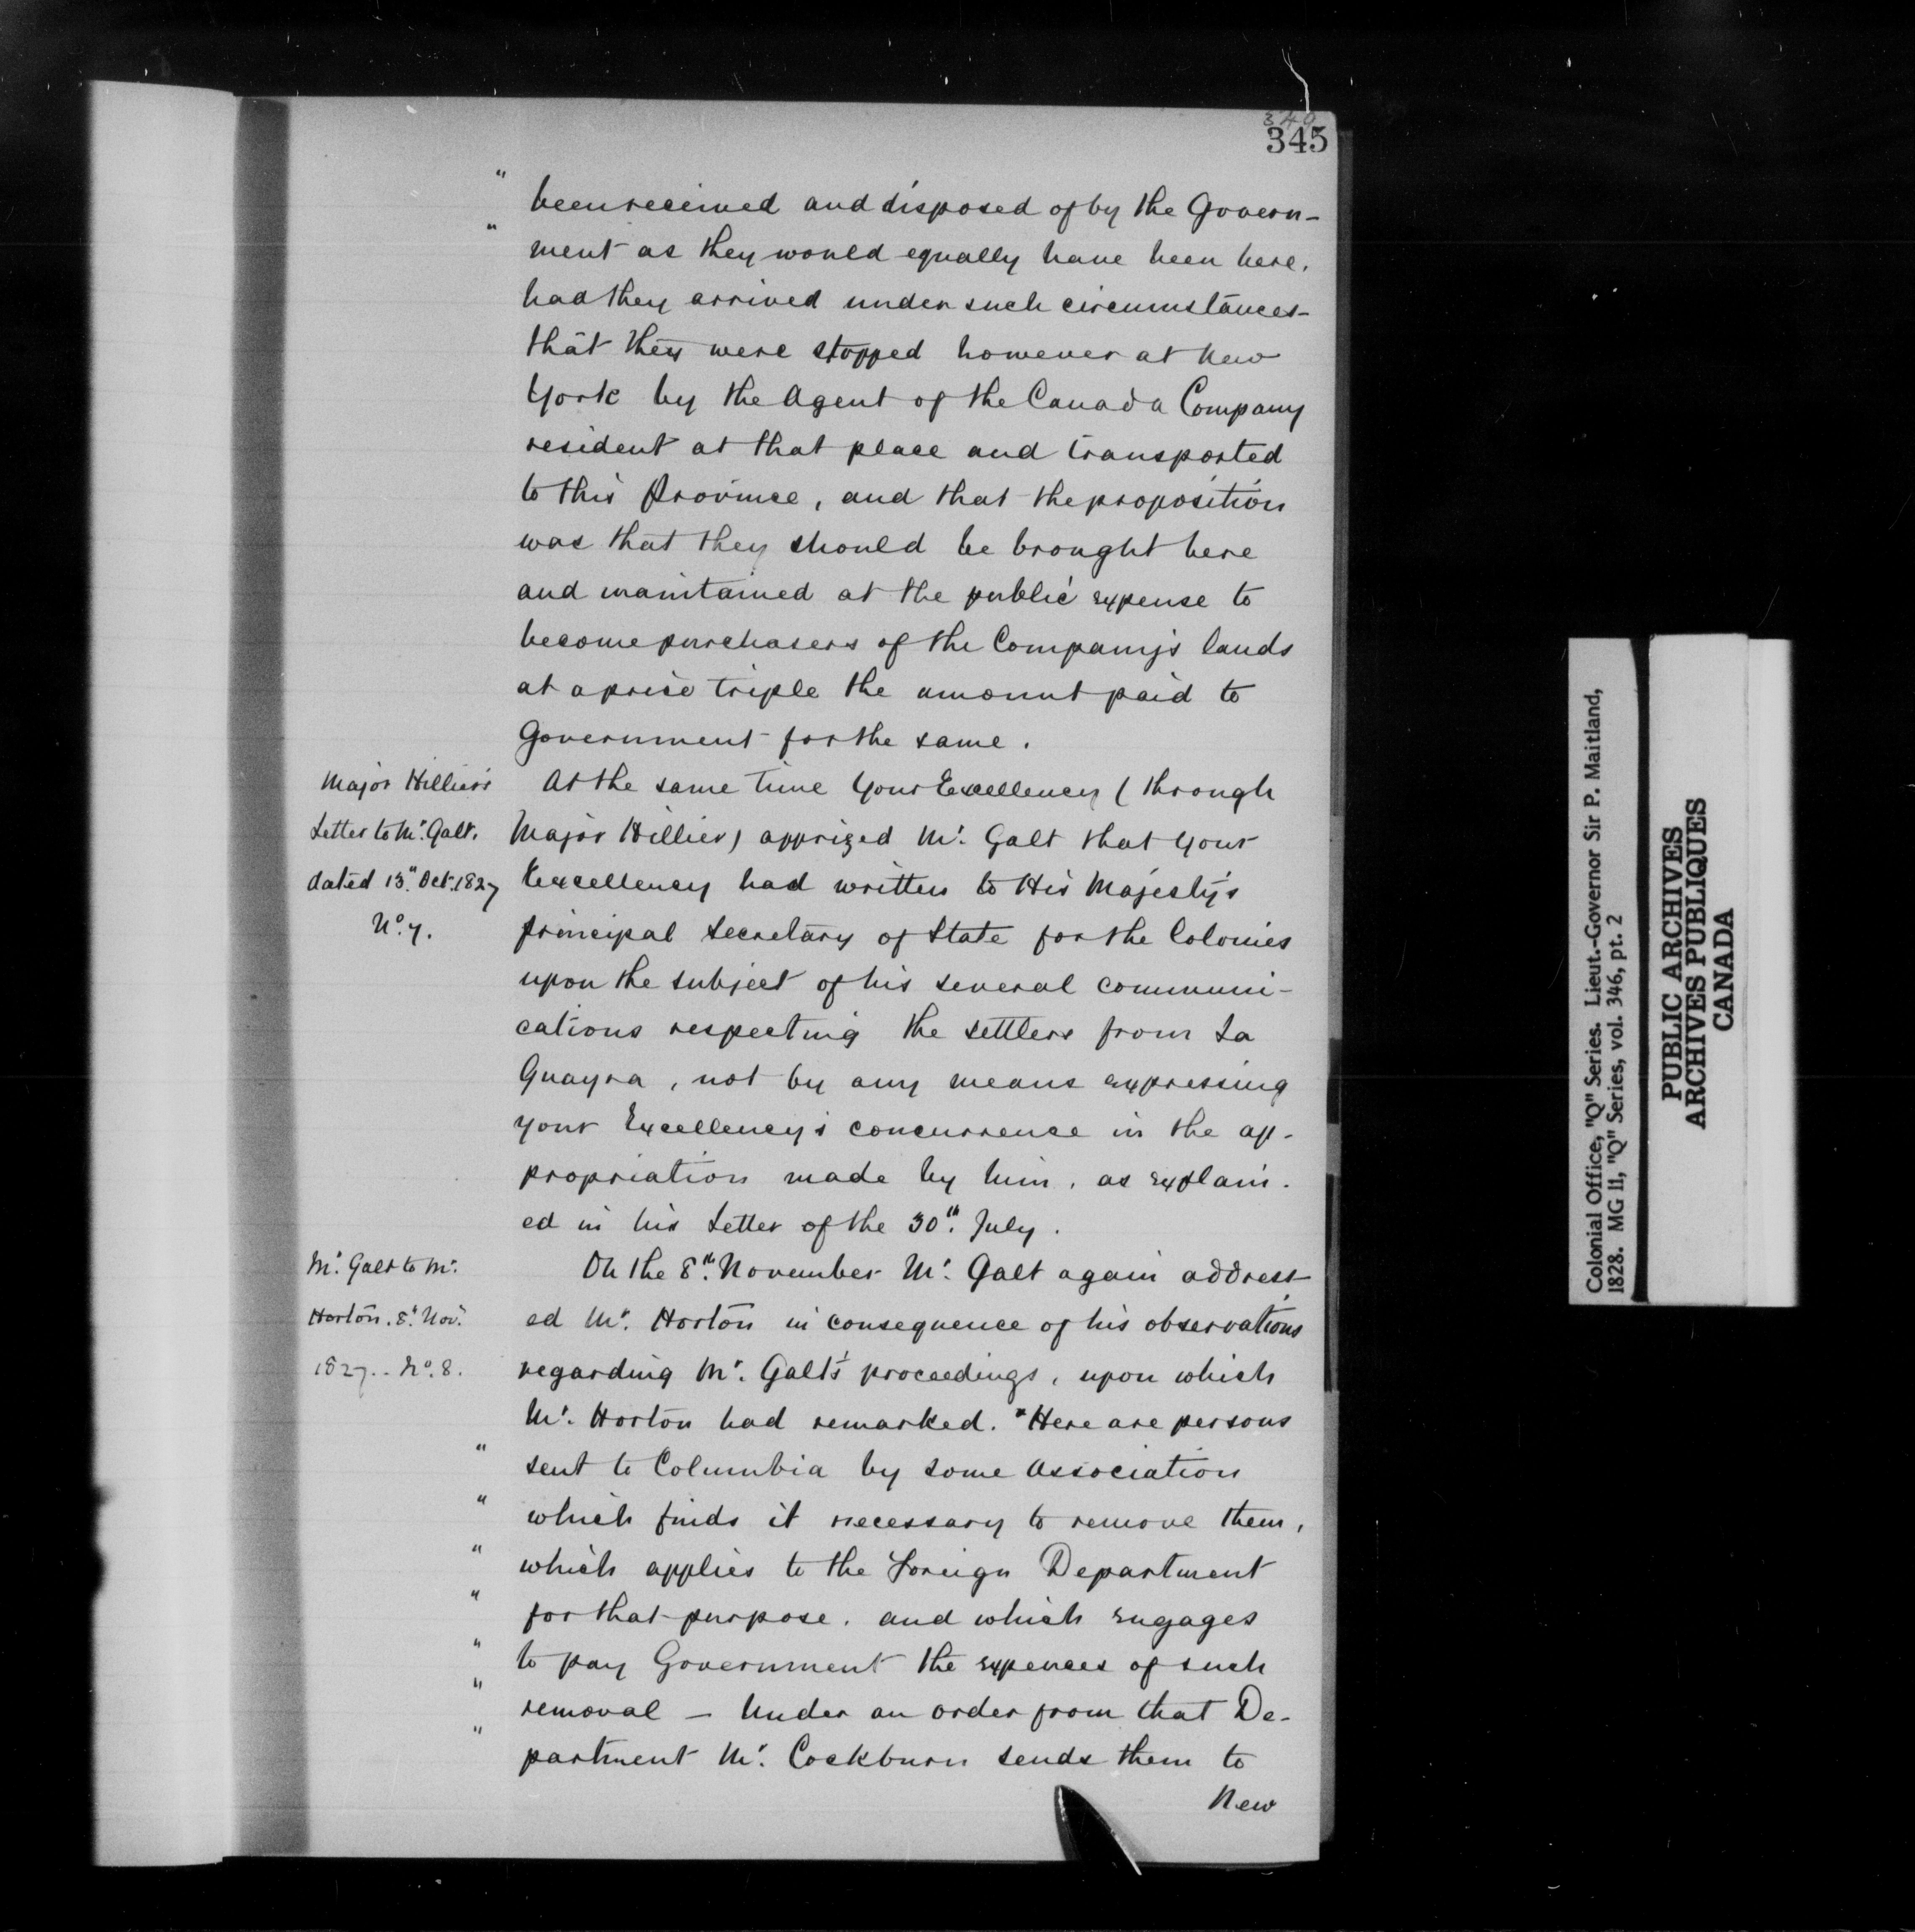 340
345
" been received and disposed of by the Govern-
" ment as they would equally have been here,
had they arrived under such circumstances-
that they were stopped however at New
York by the Agent of the Canada Company
resident at that place and transported
to this Province, and that the proposition
was that they should be brought here
and maintained at the public expense to
become purchasers of the Company's lands
at a price triple the amount paid to
Government for the same.
Major Hillier's
Letter to Mr. Galt.
dated 13th Oct. 1827
No. 7.
At the same time Your Excellency (through
Major Hillier) apprized Mr. Galt that Your
Excellency had written to His Majesty's
principal Secretary of State for the Colonies
upon the subject of his several communi-
cations respecting the settlers from La
Guayra, not by any means expressing
your Excellency's concurrence in the ap-
propriation made by him, as explain-
ed in his Letter of the 30th. July.
Mr. Galt to Mr.
Horton. 8th. Nov.
1827.. No. 8.
On the 8th. November Mr. Galt again address-
ed Mr. Horton in consequence of his observations
regarding Mr. Galt's proceedings, upon which
Mr. Horton had remarked. "Here are persons
" sent to Columbia by some Association
" which finds it necessary to remove them,
" which applies to the Foreign Department
" for that purpose, and which engages
" to pay Government the expences of such
" removal — Under an order from that De-
" partment Mr. Cockburn sends them to
New
Colonial Office, "Q" Series. Lieut.-Governor Sir P. Maitland,
1828. MG 11, "Q" Series, vol. 346, pt. 2
PUBLIC ARCHIVES
ARCHIVES PUBLIQUES
CANADA